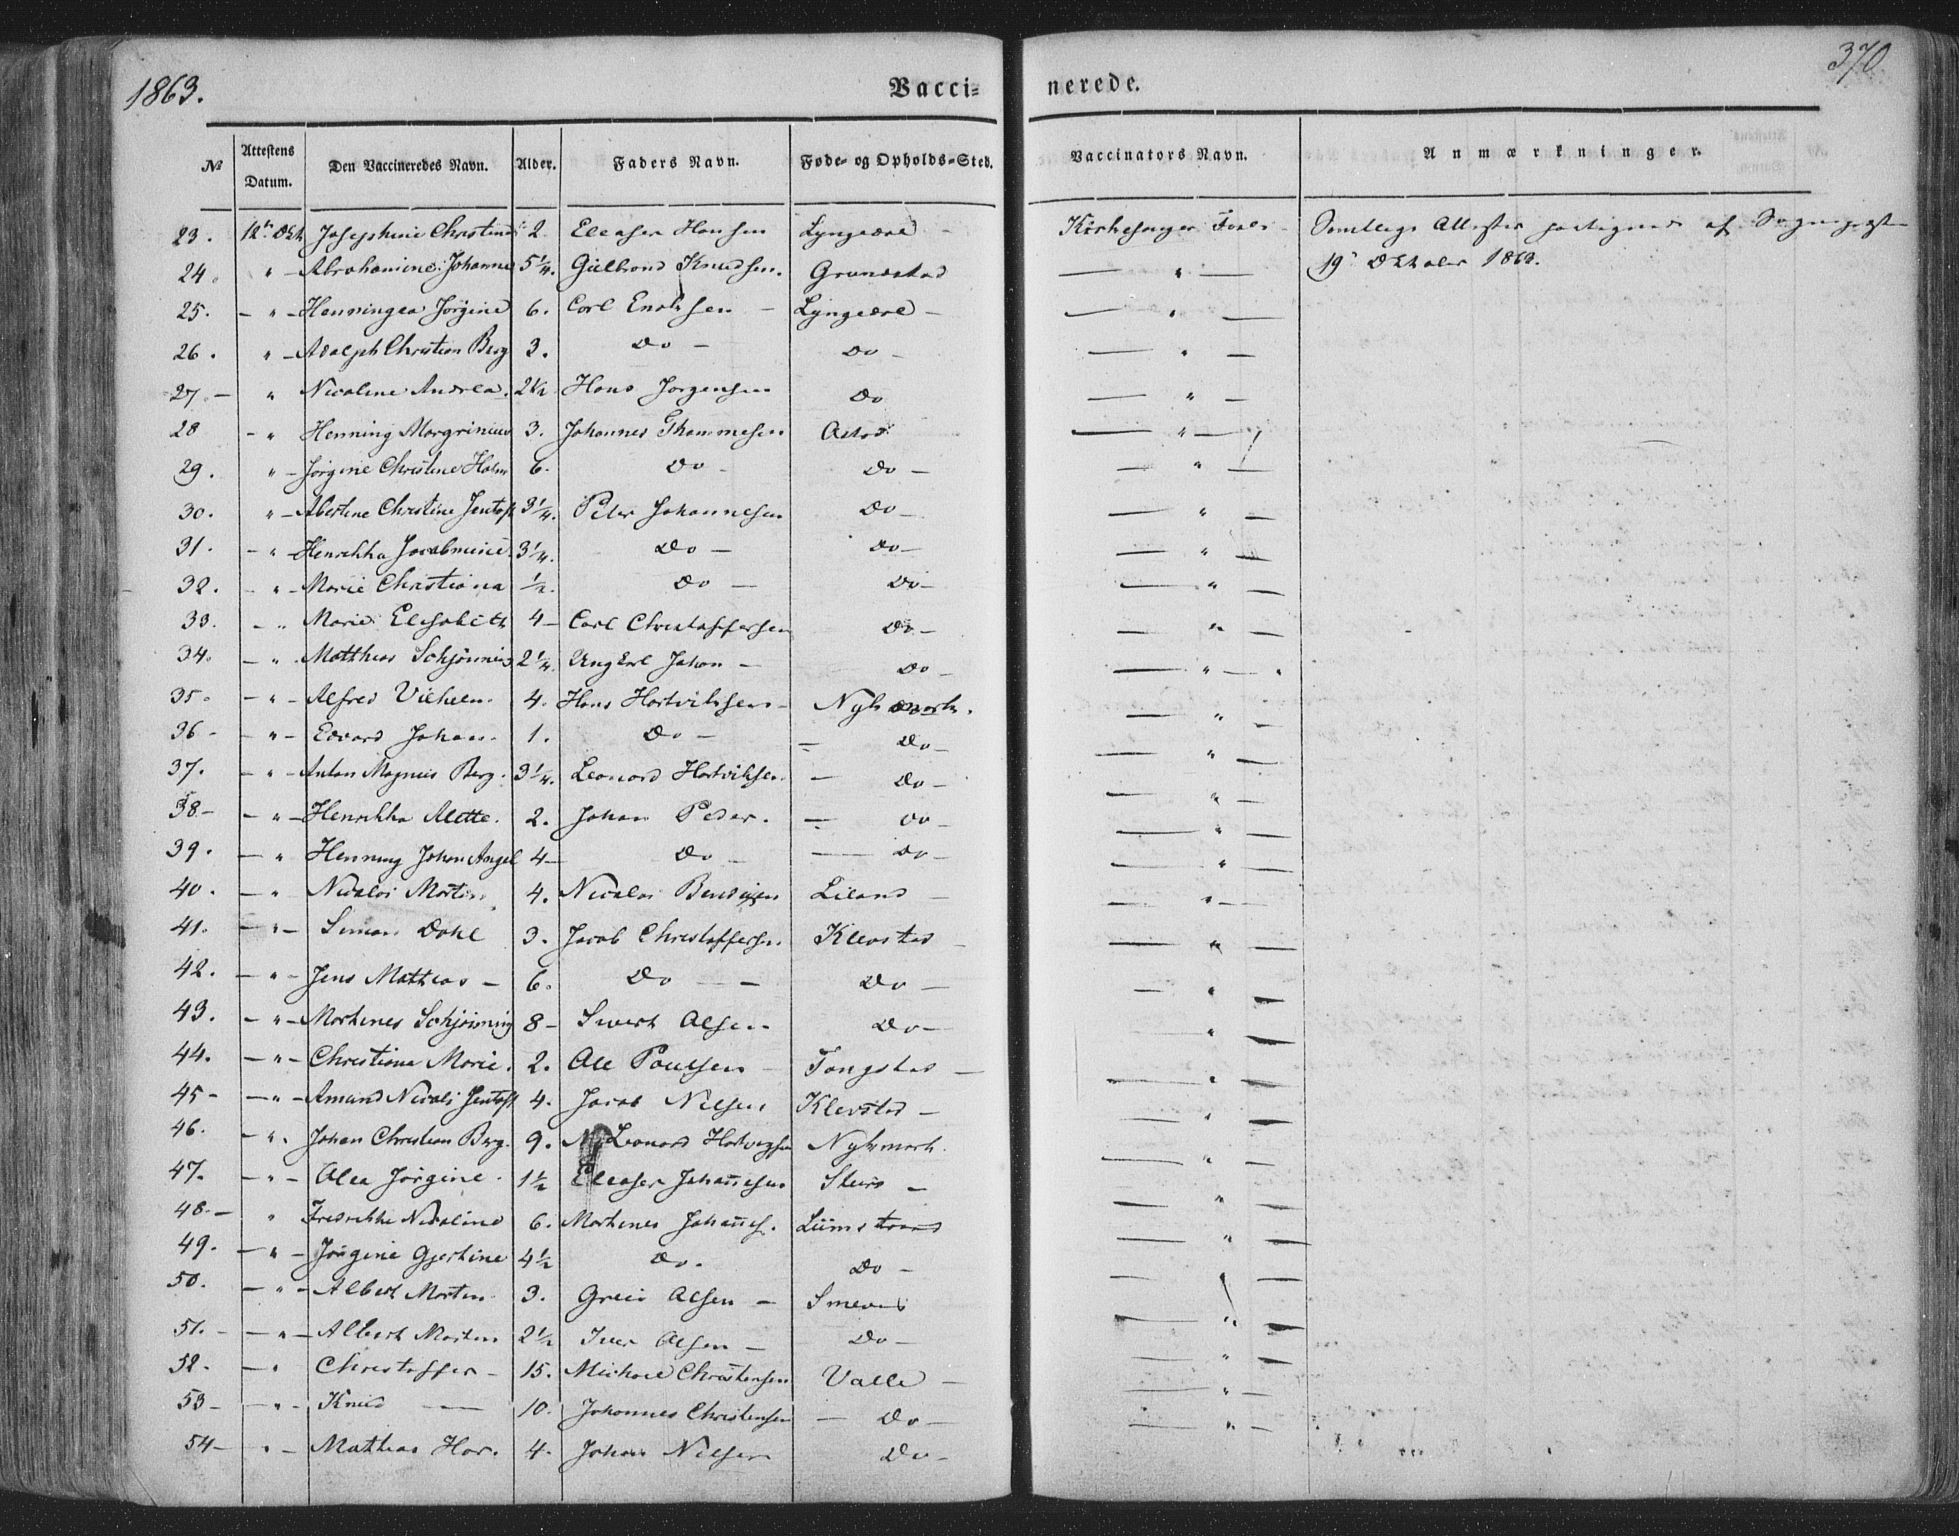 1863.
Vaccinerede.
370
№ Attestens Datum. Den Vaccineredes Navn. Alder. Faders Navn. Føde- og Opholds-Sted. Vaccinators Navn. Anmærkninger.
23. 12te Okt Josephine Christine 2 Eleaser Hansen Lyngedal - Kirkesanger
24. " - Abrahamine Johanne 5¼. Gulbrand Knudsen. Grundstad — " — 19 Oktober 1863.
25. - " - Henningea Jørgine 6. Carl Enoksen - Lyngedal - — " —
26. " - Adolph Christian Berg 3. Do - Do - — " —
27. - " Nicoline Andrea. 2½ Hans Jørgensen Do — " —
28 - " Henning Margrinius 3. Johannes Thommesen — " —
29. " - Jørgine Christine Holm 6. Do - Do - — " —
30. " - Abertine Christine Jentoft 3¼. Peder Johannesen Do - — " —
31. - " - Henrikka Jacobmine. 3¼. Do - Do - — " —
32. - " - Marie Christiana ½. Do - Do - — " —
33. - " Marie Elisabeth 4 - Carl Christoffersen Do - — " —
34. - " - Matthias Schjønnig 2¼. Johan - Do - — " —
35. - " - Alfred Vilhelm. 4. Hans Hartviksen - Nykmark. — " —
36 - - " - Edvard Johan. 1. Do - - Do - — " —
37. - " - Anton Magnus Berg. 3¼. Leonard Hartviksen. - Do - — " —
38. - - " - Henrikka Mette. 2. Johan Peder. - Do - — " —
39. - " Henning Johan Angel 4 - Do - — Do - — " —
40. - " Nicolai Morten. 4. Nicolai Bendigsen Liland - — " —
41. - " - Simon Dahl 3. Jacob Christoffersen. Klevstad - — " —
42. - " - Jens Mathias - 6. Do - - Do - — " —
43. - " - Mortines Schjønning 8 - Sivert Olsen Do - "
44. - " - Christiana Marie. 2. Ole Poulsen - Tangstad - — " —
45 - - " - Amand Nicolai Jentoft 4. Jacob Nilsen Klevstad - "
46. - ". Johan Christian Berg. 9. Leonard Hartvigsen Nykmark. — " —
47. - " - Olea Jørgine. 1½ Eleaser Johannesen Steiro - — " —
48. - " Fredrikke Nicoline 6. Mortines Johannes. — " —
49. - " - Jørgine Gjertine 4½ Do. Do - — " —
50. - " - Albert Morten 3. Greis Olsen - — " —
51. - - " - Albert Morten 2½ Iver Olsen - Do - — " —
52. - " Christoffer - 15. Michael Christensen Valle - — " —
53 - - " - Knud — 10. Johannes Christensen - Do - — " —
54 - " - Mathias Hor. 4. Johan Nilsen Do - — " —